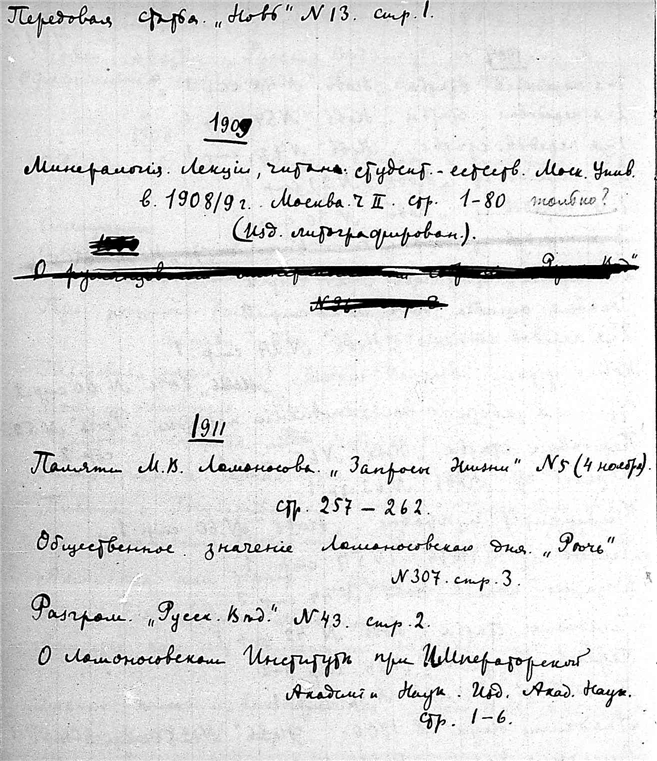 Передовая статья. „Новь" N 13. стр. 1.
1909
Минералогія. Лекціи, читан. студент.-естеств. Моск. Унив.
в. 1908/9 г. Москва. ч II. стр. 1-80 только?
(Изд. литографирован.).
О
N 36. стр 2.
1911
Памяти М. В. Ломоносова. „Запросы жизни" N5 (4 ноября).
стр. 257 – 262.
Общественное значеніе Ломоносовскаго дня. „Рѣчь"
N 307. стр. 3.
Разгром. „Русск. Вѣд." N 43. стр. 2.
О Ломоносовском Институтѣ при Императорской
Академіи Наук. Изд. Акад. Наук.
стр. 1-6.